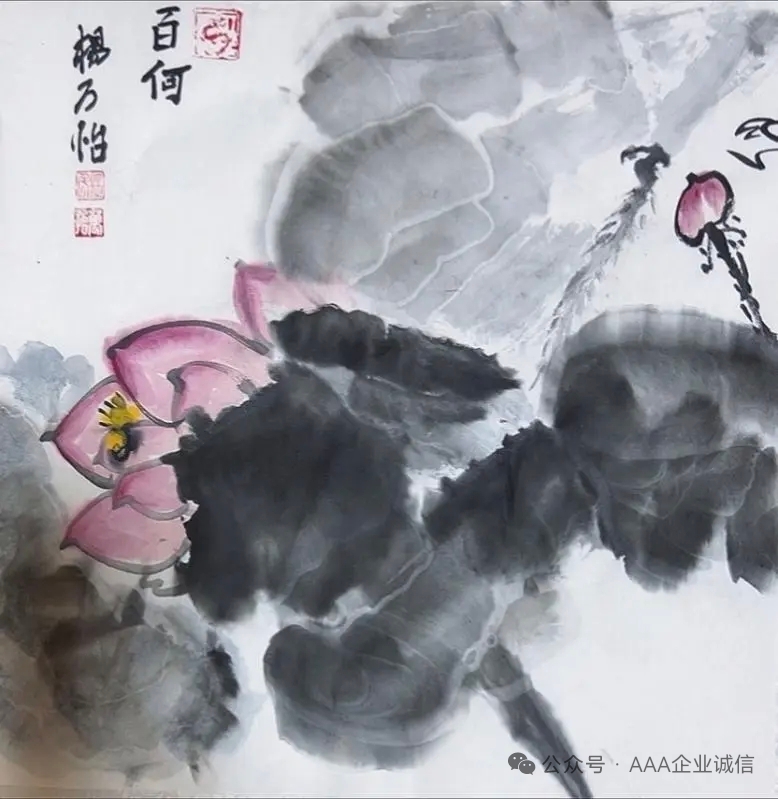 百何
楊万怡
公众号 · AAA企业诚信